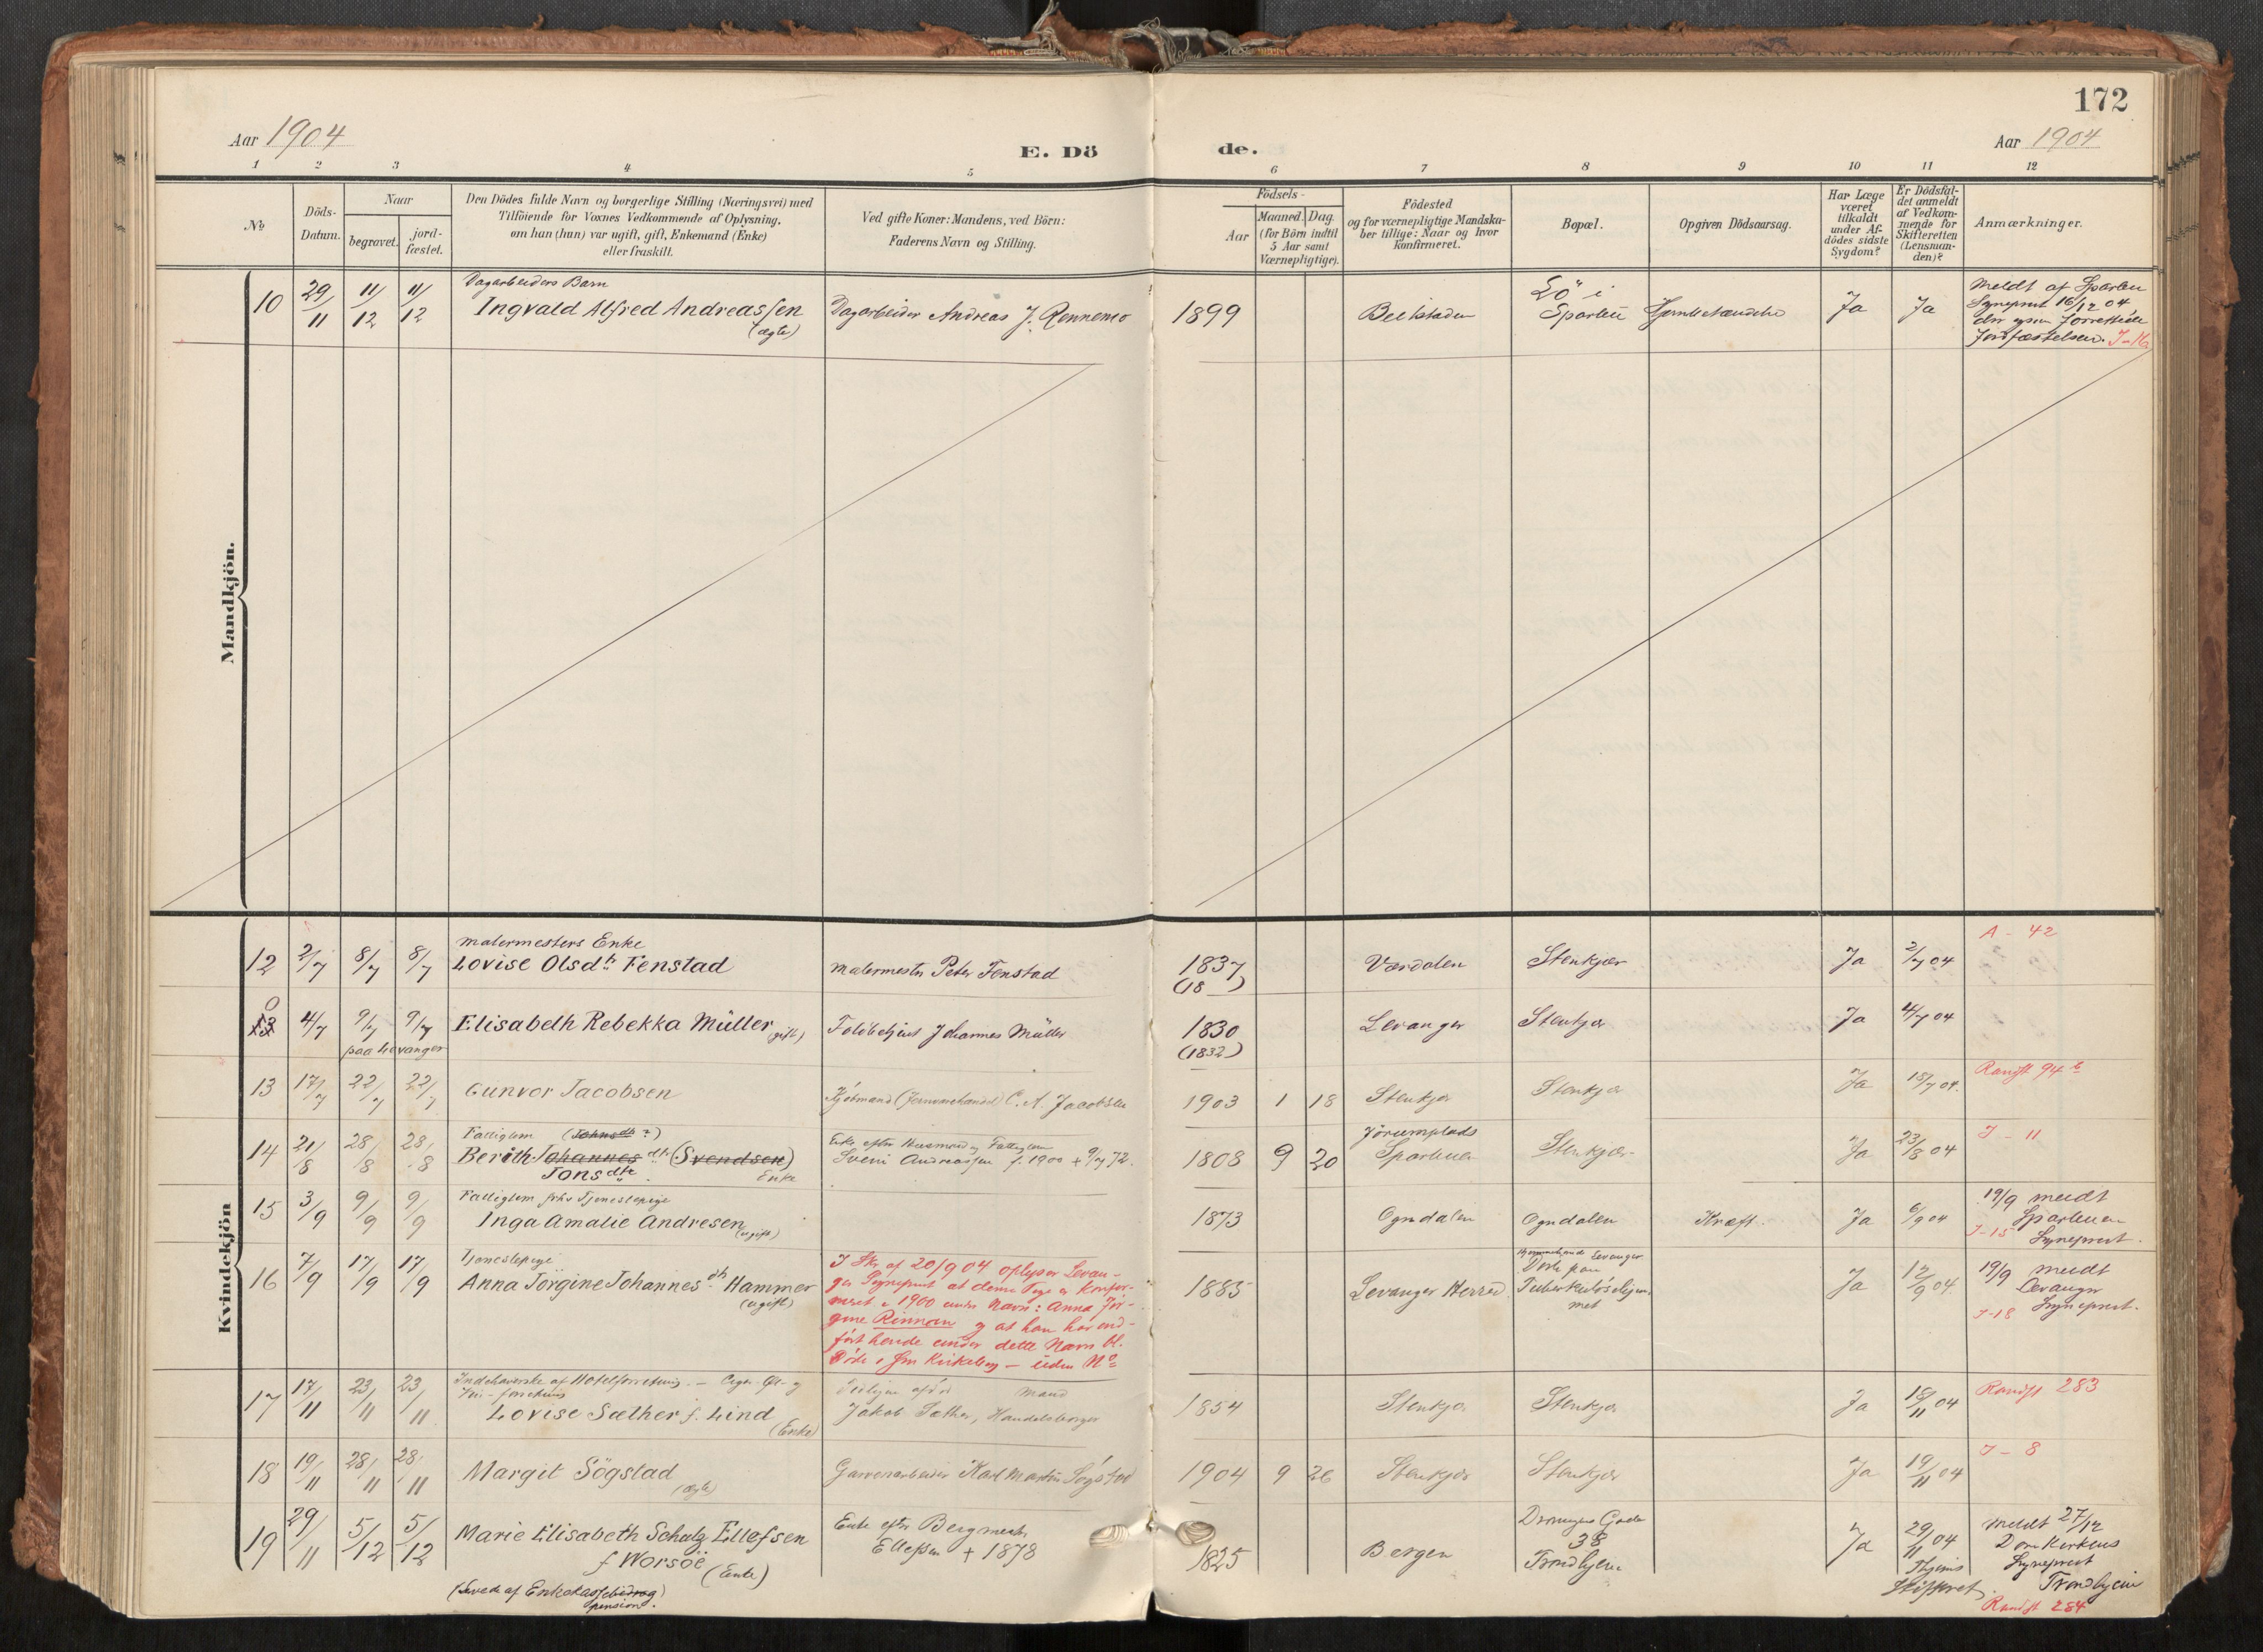 172
Aar 1904
E. Dö
de.
Aar 1904
1 2 3 4 5 6 7 8 9 10 11 12
No
Döds-
Datum.
Naar
begravet.
jord-
fæstet.
Den Dödes fulde Navn og borgerlige Stilling (Næringsvei) med
Tilföiende for Voxnes Vedkommende af Oplysning,
om han (hun) var ugift, gift, Enkemand (Enke)
eller fraskilt.
Ved gifte Koner: Mandens, ved Börn:
Faderens Navn og Stilling.
Födsels-
Aar
Maaned. Dag
(for Börn indtil
5 Aar samt
Værnepligtige).
Födested
og for værnepligtige Mandska-
ber tillige: Naar og hvor
konfirmeret.
Bopæl.
Opgiven Dödsaarsag.
Har Læge
været
tilkaldt
under Af-
dödes sidste
Sygdom?
Er Dödsfal-
det anmeldt
af Vedkom-
mende for
Skifteretten
(Lensman-
den)?
Anmærkninger.
Mandkjön.
Dagarbeiders Barn
10 29/11 11/12 11/12 Ingvald Alfred Andreassen
(ægte)
Dagarbeider Andreas J. Rennemo
1899
Beitstaden
Lö i
Sparbu
Hjernebetændelse
Ja Ja
Meldt af Sparbu
Sogneprest 16/12 04
der ogsaa forrettede
Jordfæstelsen. J-16
Kvindekjön
Malermesters Enke
12 2/7 8/7 8/7 Lovise Olsdtr Fenstad
Malermester Peter Fenstad
1837
(18 )
Værdalen Stenkjær Ja 2/7 04
A - 42
0
13 4/7 9/7 9/7 Elisabeth Rebekka Müller (gift)
paa Levanger
Toldbetjent Johannes Müller
1830
(1832)
Levanger Stenkjær Ja 4/7 04
13 17/7 22/7 22/7 Gunvor Jacobsen
Kjöbmand (Jernvarehandel) C. A. Jacobsen
1903 1 18 Stenkjær Stenkjær Ja 18/7 04.
Randft 94 b
Fattiglem (Johnsdtr ?)
14 21/8 28/8 28/8 Berith Johannesdtr (Svendsen)
Jonsdtr Enke
Enke efter Husmand og Fattiglem
Svein Andreassen f. 1900 + 9/7 72.
1808 9 20
Jörumplads
Sparbuen
Stenkjær Ja 23/8 04
J - 11
Fattiglem, fhv Tjenestepige
15 3/9 9/9 9/9 Inga Amalie Andresen
(ugift)
1873 Ogndalen Ogndalen Kræft. Ja 6/9 04
19/9 meldt
Sparbuen
J-15 Sogneprest.
Tjenestepige
16 7/9 17/9 17/9 Anna Jörgine Johannesdtr Hammer
(ugift)
I Skr af 20/9 04 oplyser Levan-
ger Sogneprest at denne Pige er konfir-
meret i 1900 under Navn: Anna Jör-
gine Rinnan og at han har ind-
fört hende under dette Navn bl.
Döde i sin Kirkebog — uden No
1885 Levanger Herred
Hjemmehörende Levanger
Döde paa
Tuberkulöshjem-
met
Ja 12/9 04.
19/9 meldt
Levanger
J-18 Sogneprest.
Indehaverske af Hotelforretning. — Cigar- Öl- og
Vin - forretning
17 17/11 23/11 23/11 Lovise Sæther f. Lind
(Enke)
Mand
Jakob Sæther, Handelsborger
1854 Stenkjær Stenkjær Ja 18/11 04
Randft 283
18 19/11 28/11 28/11 Margit Sögstad
(ægte)
Garverarbeider Karl Martin Sögstad
1904 9 26 Stenkjær Stenkjær Ja 19/11 04
J - 8
19 29/11 5/12 5/12 Marie Elisabeth Schulz Ellefsen
f Worsöe (Enke)
(Levede af Enkekassebidrag)
pension.
Enke efter Bergmester
Ellefsen + 1878
1825 Bergen
Dronningens Gade
38
Trondhjem
Ja 29/11 04
Thjems
Skifteret.
Meldt 27/12
Domkirkens
Sogneprest
Trondhjem
Randft 284